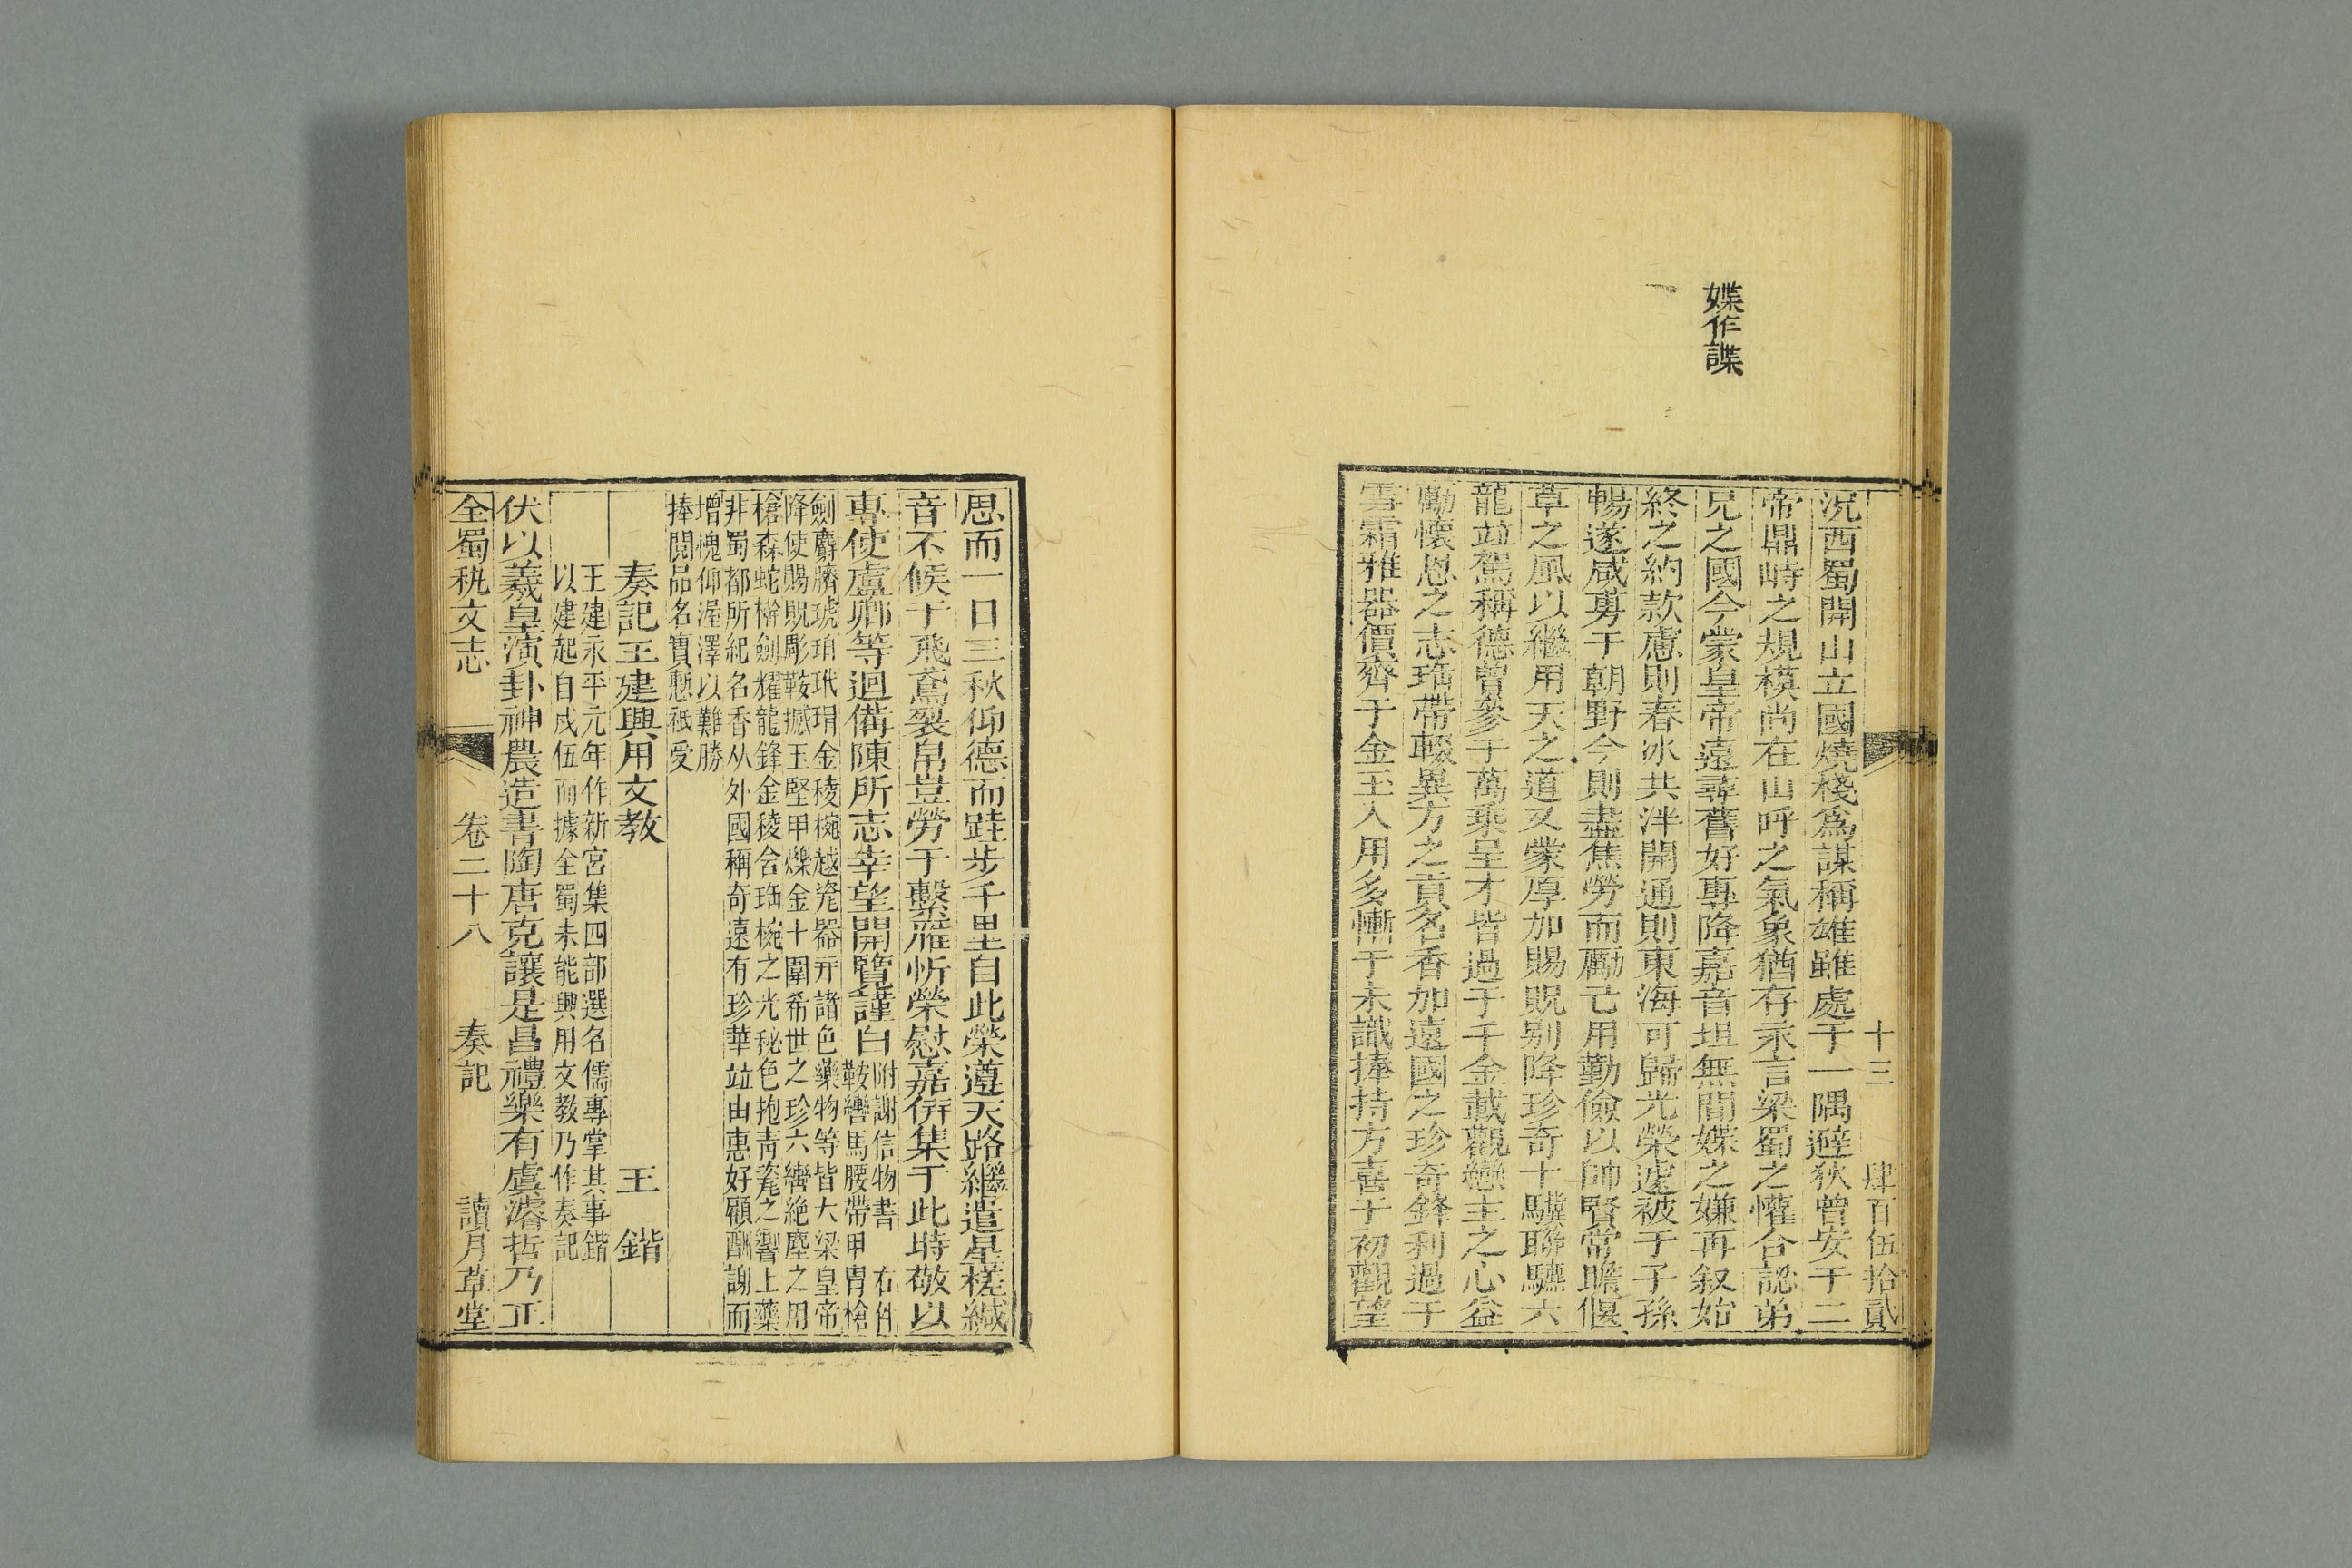 媟作諜
十三　肆百伍拾貳
況西蜀開山立國燒棧為謀稱雄雖處于一隅避狄曾安于二
帝鼎峙之規模尚在山呼之氣象猶存永言梁蜀之懽合認弟
兄之國今蒙皇帝遠尋舊好專降嘉音坦無間媟之嫌再叙始
終之約款慮則春冰共泮開通則東海可歸光榮遽被于子孫
暢遂咸旉于朝野今則盡焦勞而勵己用勤儉以師賢常瞻偃
草之風以繼用天之道又蒙厚加賜貺别降珍奇十驥聯驤六
龍竝駕稱德曾參于萬乘呈才皆過于千金載觀戀主之心益
勵懷恩之志瑀帶輟異方之貢名香加遠國之珍奇鋒利過于
雪霜雅器價齊于金玉入用多慚于未識捧持方喜于初觀望
思而一日三秋仰德而跬步千里自此榮遵天路繼遣星槎緘
音不候于飛鳶裂帛豈勞于繫雁忻榮慰嘉併集于此時敬以
專使盧卿等迴備陳所志幸望開覽謹白附謝信物書　右件
鞍轡馬腰帶甲冑槍
劍麝臍琥珀玳瑁金稜椀越瓷器并諸色藥物等皆大梁皇帝
降使賜貺彫鞍撼玉堅甲爍金十圍希世之珍六轡絶塵之用
槍森蛇檊劍耀龍鋒金稜含瑀椀之光秘色抱青瓷之響上藥
非蜀都所紀名香从外國稱奇遠有珍華竝由惠好顧酬謝而
增愧仰渥澤以難勝
捧閱品名實慙祇受
奏記王建興用文教　王　鍇
王建永平元年作新宮集四部選名儒專掌其事鍇
以建起自戍伍而據全蜀未能興用文教乃作奏記
伏以羲皇演卦神農造書陶唐克讓是昌禮樂有虞濬哲乃正
全蜀秇文志　卷二十八　奏記　讀月草堂